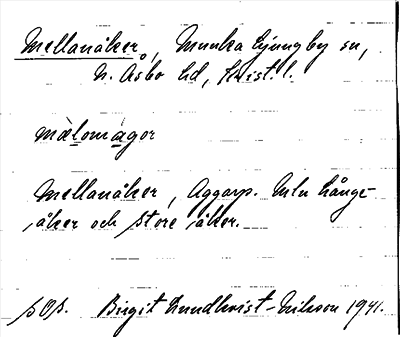 Mellanåker, Munka Ljungby sn,
N. Åsbo hd, Krist. l.
mælomagor
Mellanåker, Aggarp. Mln Långe-
åker och store åker.
sOs. Birgit Lundkvist-Nilsson 1941.